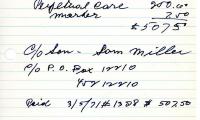 Perpetual Care 200.00
marker 2.50
$ 507.5
C/o Son - Sam Miller
P/o P.O. Box 12210
12210
Paid 3/5/71 # 1308 $ 507.50